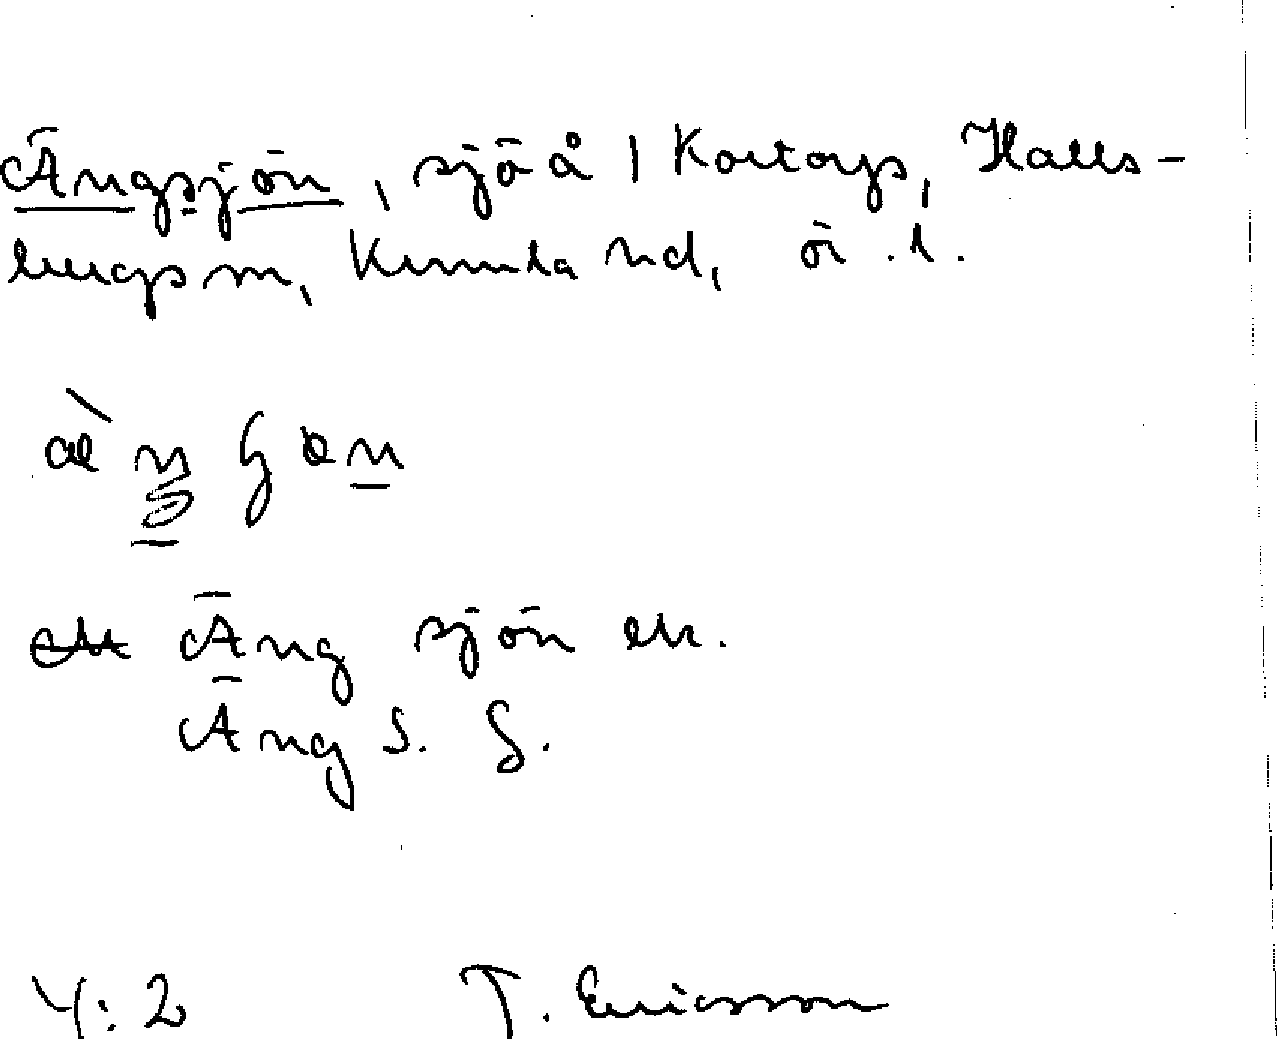 Ängsjön, sjö å 1 Kortorps, Halls-
bergs sn, Kumla hd, ör. l.
Äng sjön ek.
Äng s. G.
4:2 T. Ericsson